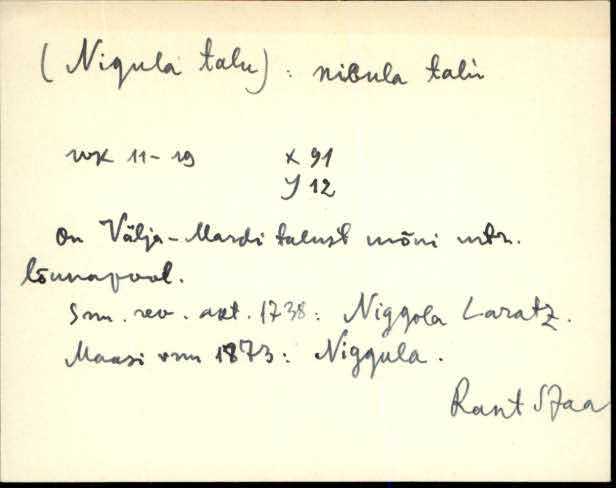 (Nigula talu): nibula talu
WK 11-19 X 91
Y 12
on Välja-Mardi talust mõni mtr.
lõunapool.
Sm. rev. akt. 1738: Niggola Laratz.
Maasi vm 1873: Niggula.
Rant Jaa